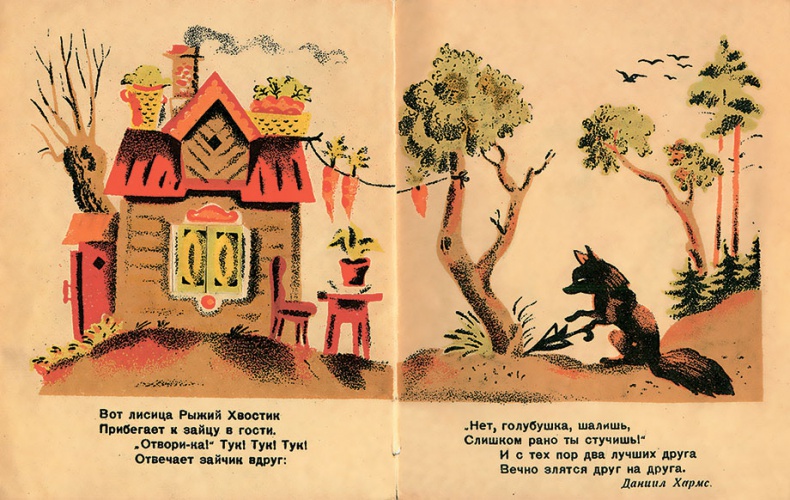 Вот лисица Рыжий Хвостик
Прибегает к зайцу в гости.
„Отвори-ка!“ Тук! Тук! Тук!
Отвечает зайчик вдруг:
„Нет, голубушка, шалишь,
Слишком рано ты стучишь!“
И с тех пор два лучших друга
Вечно злятся друг на друга.
Даниил Хармс.